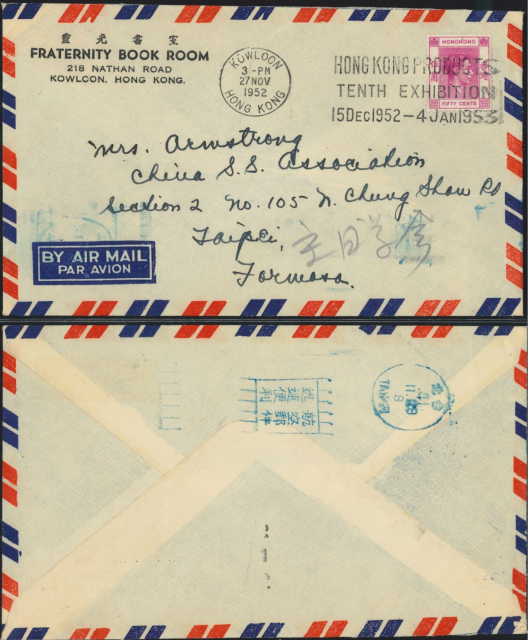 靈光書室
FRATERNITY BOOK ROOM
218 NATHAN ROAD
KOWLOON, HONG KONG.
KOWLOON
3-PM
27 NOV
1952
HONG KONG
HONG KONG PRODUCTS
TENTH EXHIBITION
15 DEC 1952 – 4 JAN 1953
HONGKONG
FIFTY CENTS
Mrs. Armstrong
China S.S. Association
Section 2 No. 105 N. Chung Shan Rd
Taipei,
Formosa.
主日學
BY AIR MAIL
PAR AVION
航空郵件
迅速便利
TAIPEI